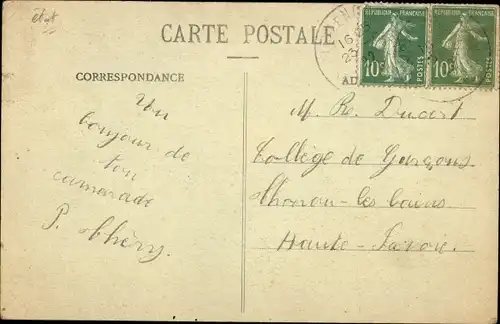 état
CARTE POSTALE
REPUBLIQUE FRANÇAISE
10c
POSTES
REPUBLIQUE FRANÇAISE
10c
POSTES
CORRESPONDANCE
AD
Un
bonjour de
ton
camarade
P. Théry
M. Re. Ducort
Collège de Garçons
Thonon-les bains
Haute-Savoie.